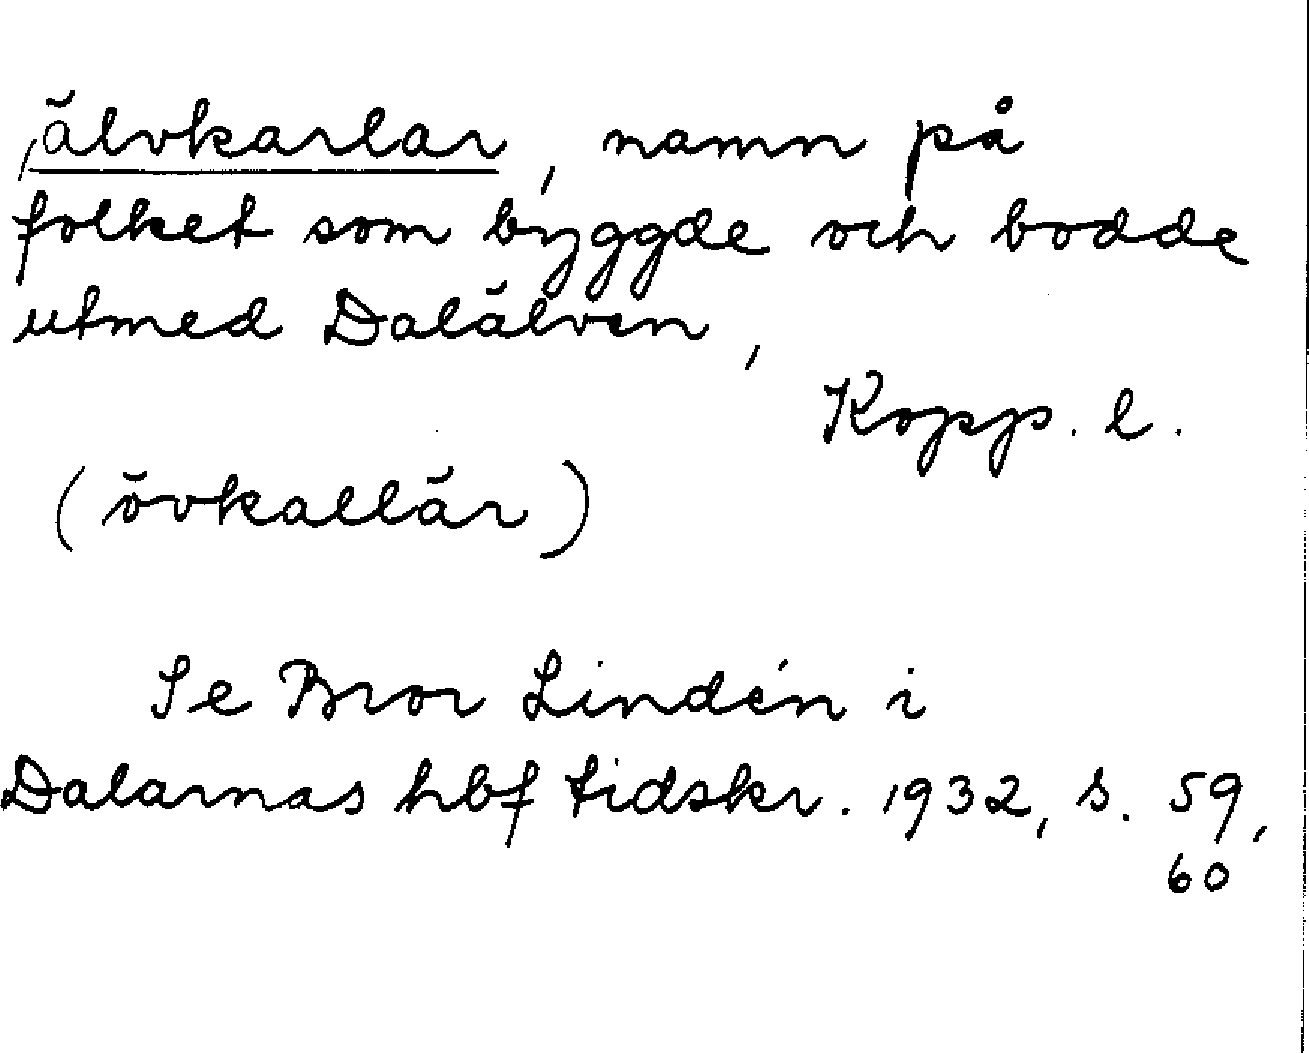 ,älvkarlar, namn på
folket som byggde och bodde
utmed Dalälven,
Kopp. l.
(övkallär)
Se Bror Lindén i
Dalarnas hbf tidskr. 1932, s. 59,
60